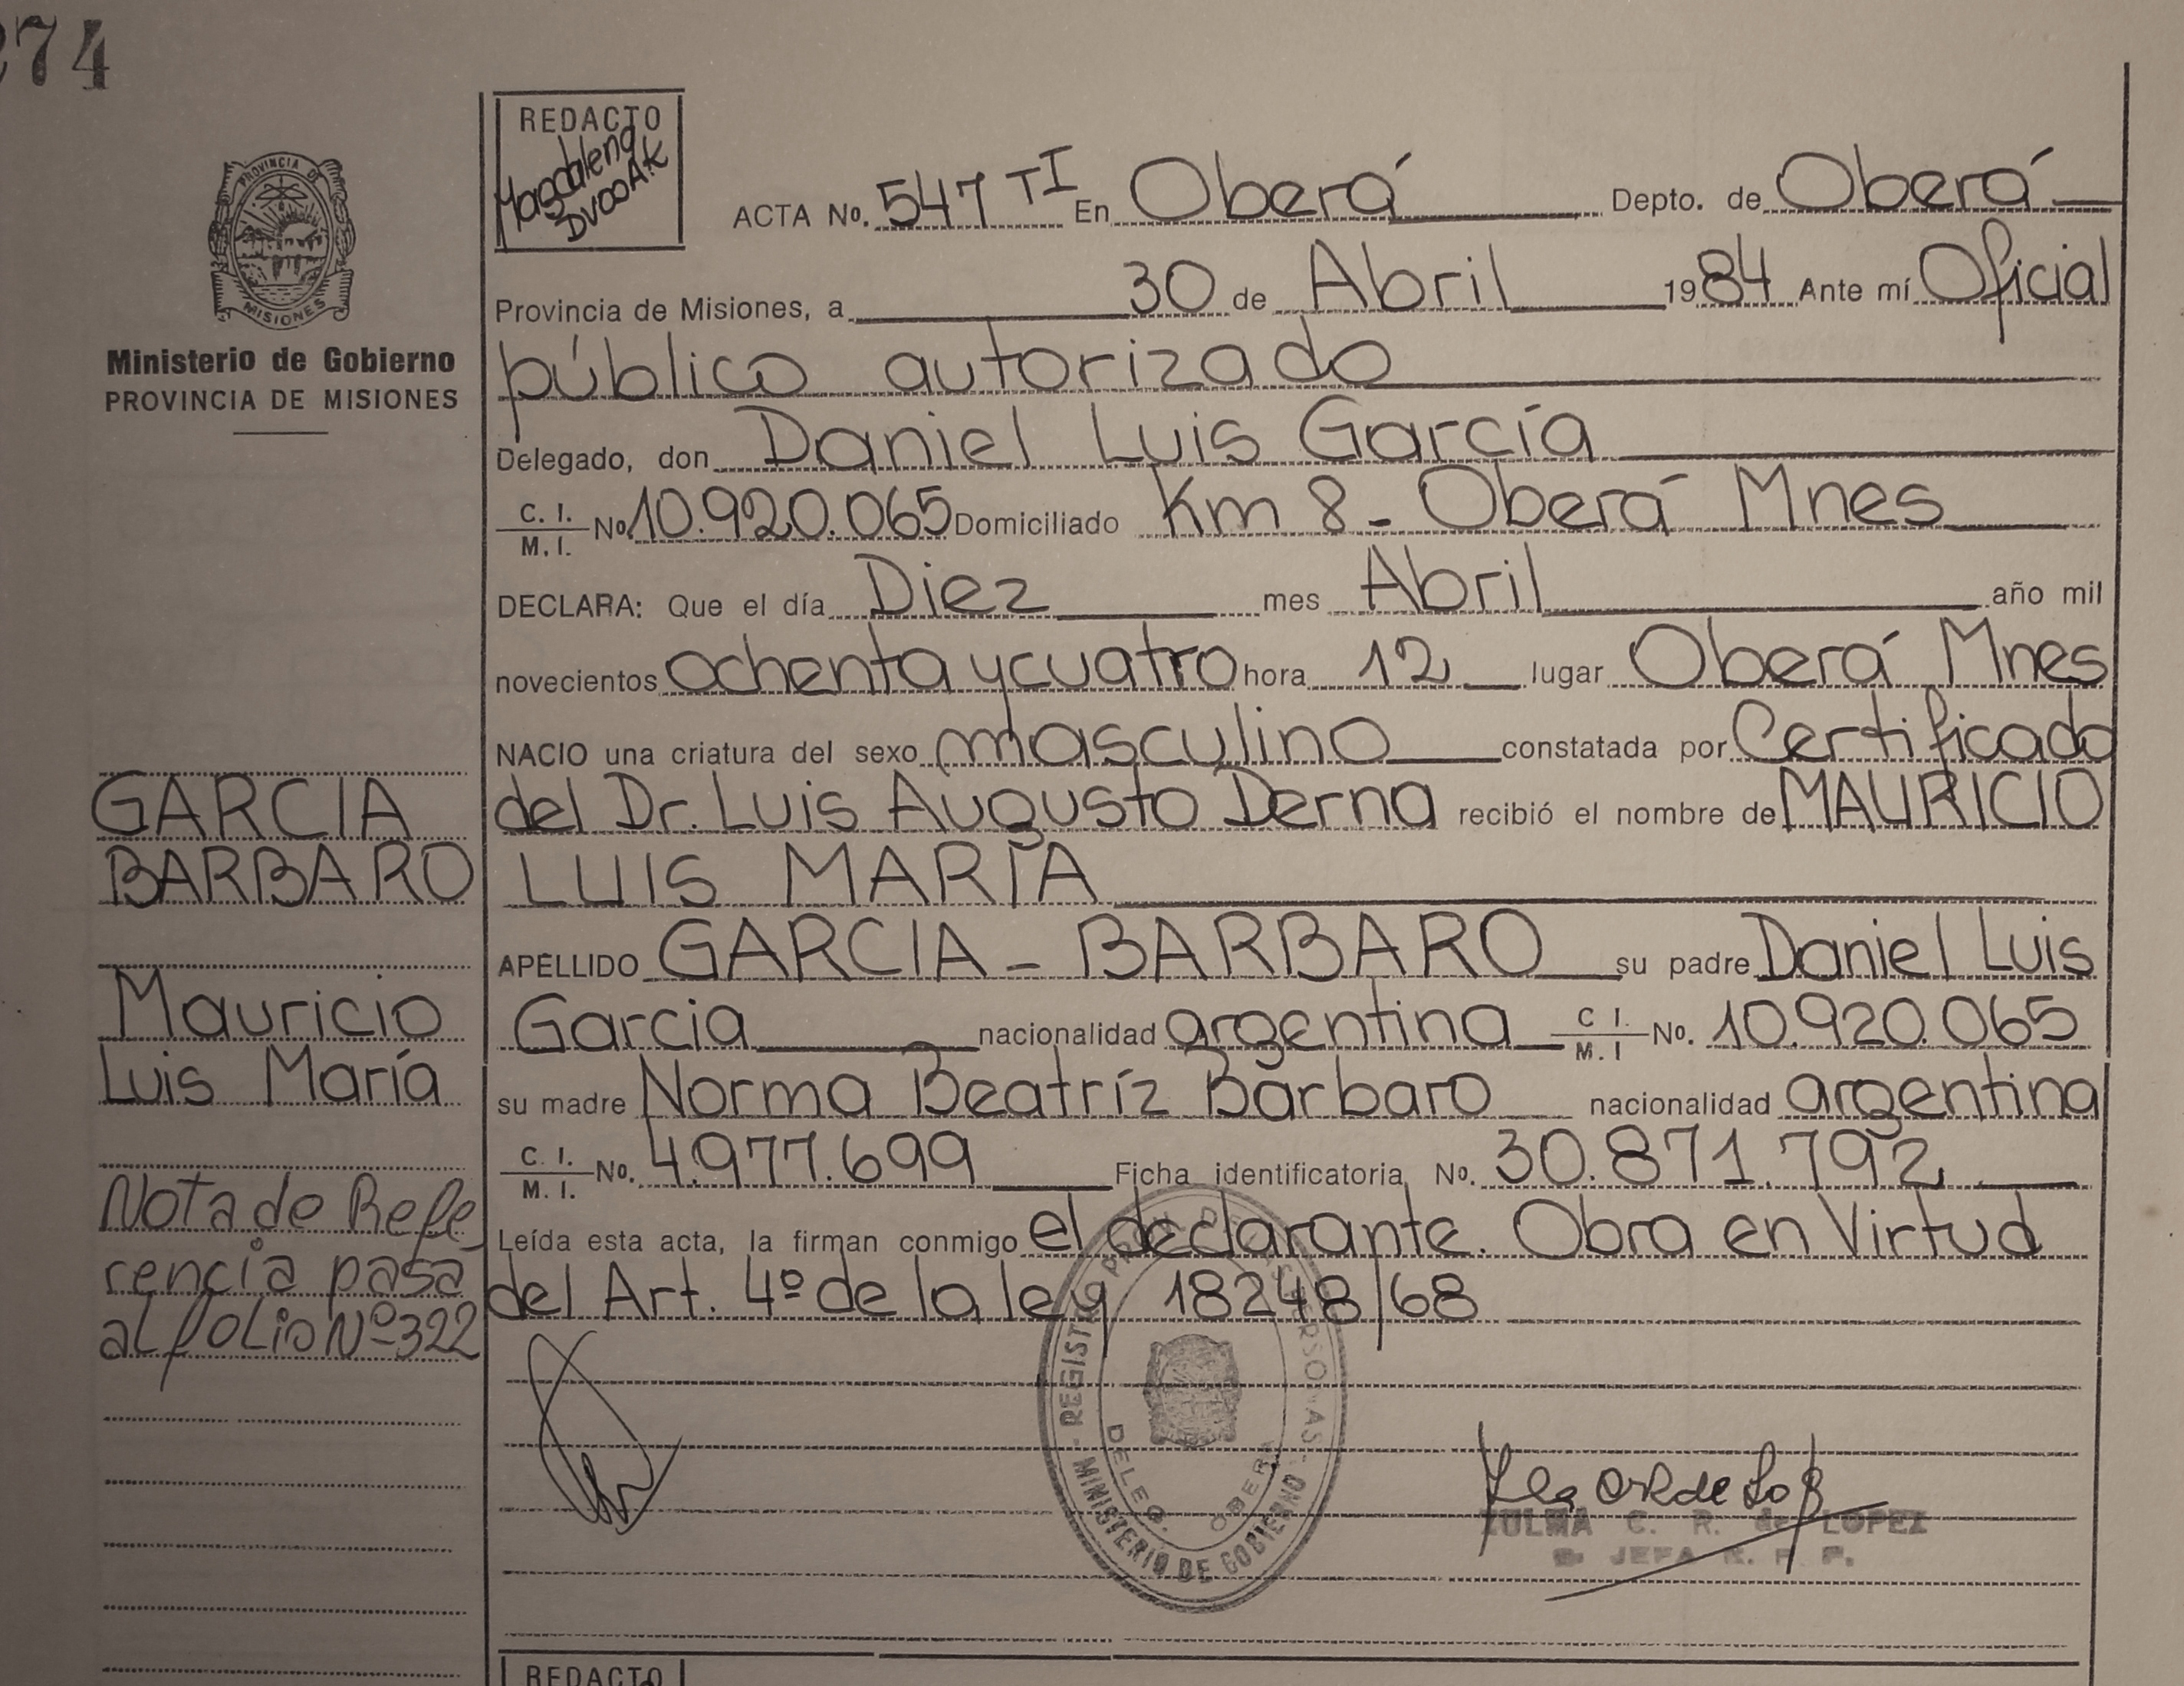 274
REDACTO
Magdalena
PROVINCIA DE
MISIONES
Ministerio de Gobierno
PROVINCIA DE MISIONES
ACTA No. 547 TI En Oberá Depto. de Oberá
Provincia de Misiones, a 30 de Abril 1984 Ante mí Oficial
público autorizado
Delegado, don Daniel Luis García
C. I. / M. I. No. 10.920.065 Domiciliado Km 8 - Oberá Mnes
DECLARA: Que el día Diez mes Abril año mil
novecientos ochenta y cuatro hora 12 lugar Oberá Mnes
NACIO una criatura del sexo masculino constatada por Certificado
del Dr. Luis Augusto Derna recibió el nombre de MAURICIO
LUIS MARÍA
APELLIDO GARCIA - BARBARO su padre Daniel Luis
Garcia nacionalidad argentina C I. / M. I No. 10.920.065
su madre Norma Beatríz Bárbaro nacionalidad argentina
C. I. / M. I. No. 4.977.699 Ficha identificatoria No. 30.871.792
Leída esta acta, la firman conmigo el declarante. Obra en Virtud
del Art. 4º de la ley 18248/68
GARCIA
BARBARO
Mauricio
Luis María
Nota de Refe
rencia pasa
al folio Nº 322
REGISTRO PROV. DE LAS PERSONAS
MINISTERIO DE GOBIERNO
DELEG. OBERA
ZULMA C. R. de LOPEZ
JEFA R. P. P.
REDACTO